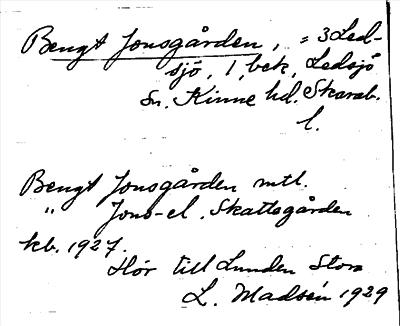 Bengt Jonsgården, = 3 Led-
sjö, 1, bek, Ledsjö
Sn. Kinne hd. Skarab.
l.
Bengt Jonsgården mtl.
" Jons-el. Skattegården
kb. 1927.
Hör till Lunden Stora
L. Madsén 1929